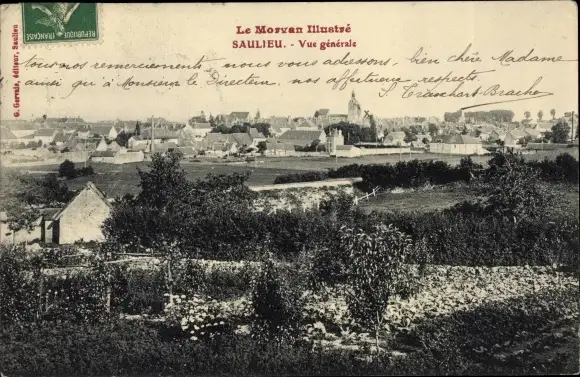 Le Morvan Illustré
SAULIEU. - Vue générale
G. Gervais, éditeur, Saulieu
tous nos remerciements nous vous adressons, bien chère Madame
ainsi qu'à Monsieur le Directeur, nos affectueux respects